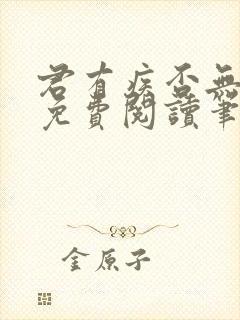 君有疾否無
免費閱讀筆
金原子